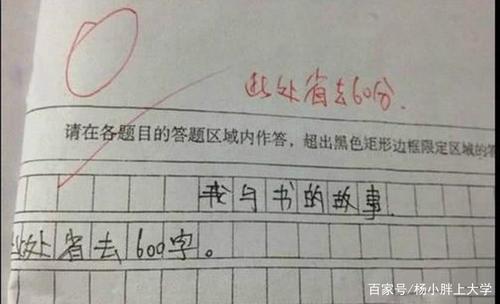 此处省去60分.
请在各题目的答题区域内作答，超出黑色矩形边框限定区域的答
我与书的故事
此处省去600字。
百家号/杨小胖上大学